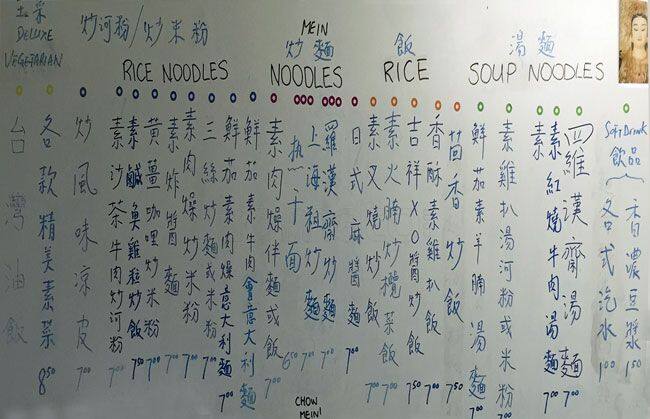 DELUXE
VEGETARIAN
炒河粉/炒米粉
RICE NOODLES
MEIN
炒麵
NOODLES
飯
RICE
湯麵
SOUP NOODLES
Soft Drink
飲品
台灣油飯
各款精美素菜 8.50
炒風味涼皮 7.00
素沙茶牛肉炒河粉 7.00
素鹹魚雞粒炒飯 7.50
黃薑咖哩炒米粉 7.00
素炸醬麵 7.00
素肉燥炒米粉 7.00
三絲炒麵或米粉 7.00
鮮茄素肉燥意大利麵 7.00
鮮茄素牛肉會意大利麵
素肉燥伴麵或飯
上海粗炒麵 7.00
羅漢齋炒麵 7.00
日式麻醬麵 7.00
素叉燒炒飯 7.00
素火腩炒欖菜飯 7.00
吉祥XO醬炒飯 7.50
香酥素雞扒飯 7.00
茴香炒飯 7.50
鮮茄素羊腩湯麵
素雞扒湯河粉或米粉 7.00
素紅燒牛肉湯麵 7.00
四維漢齋湯麵 7.00
各式汽水 1.00
香濃豆漿 1.50
CHOW
MEIN